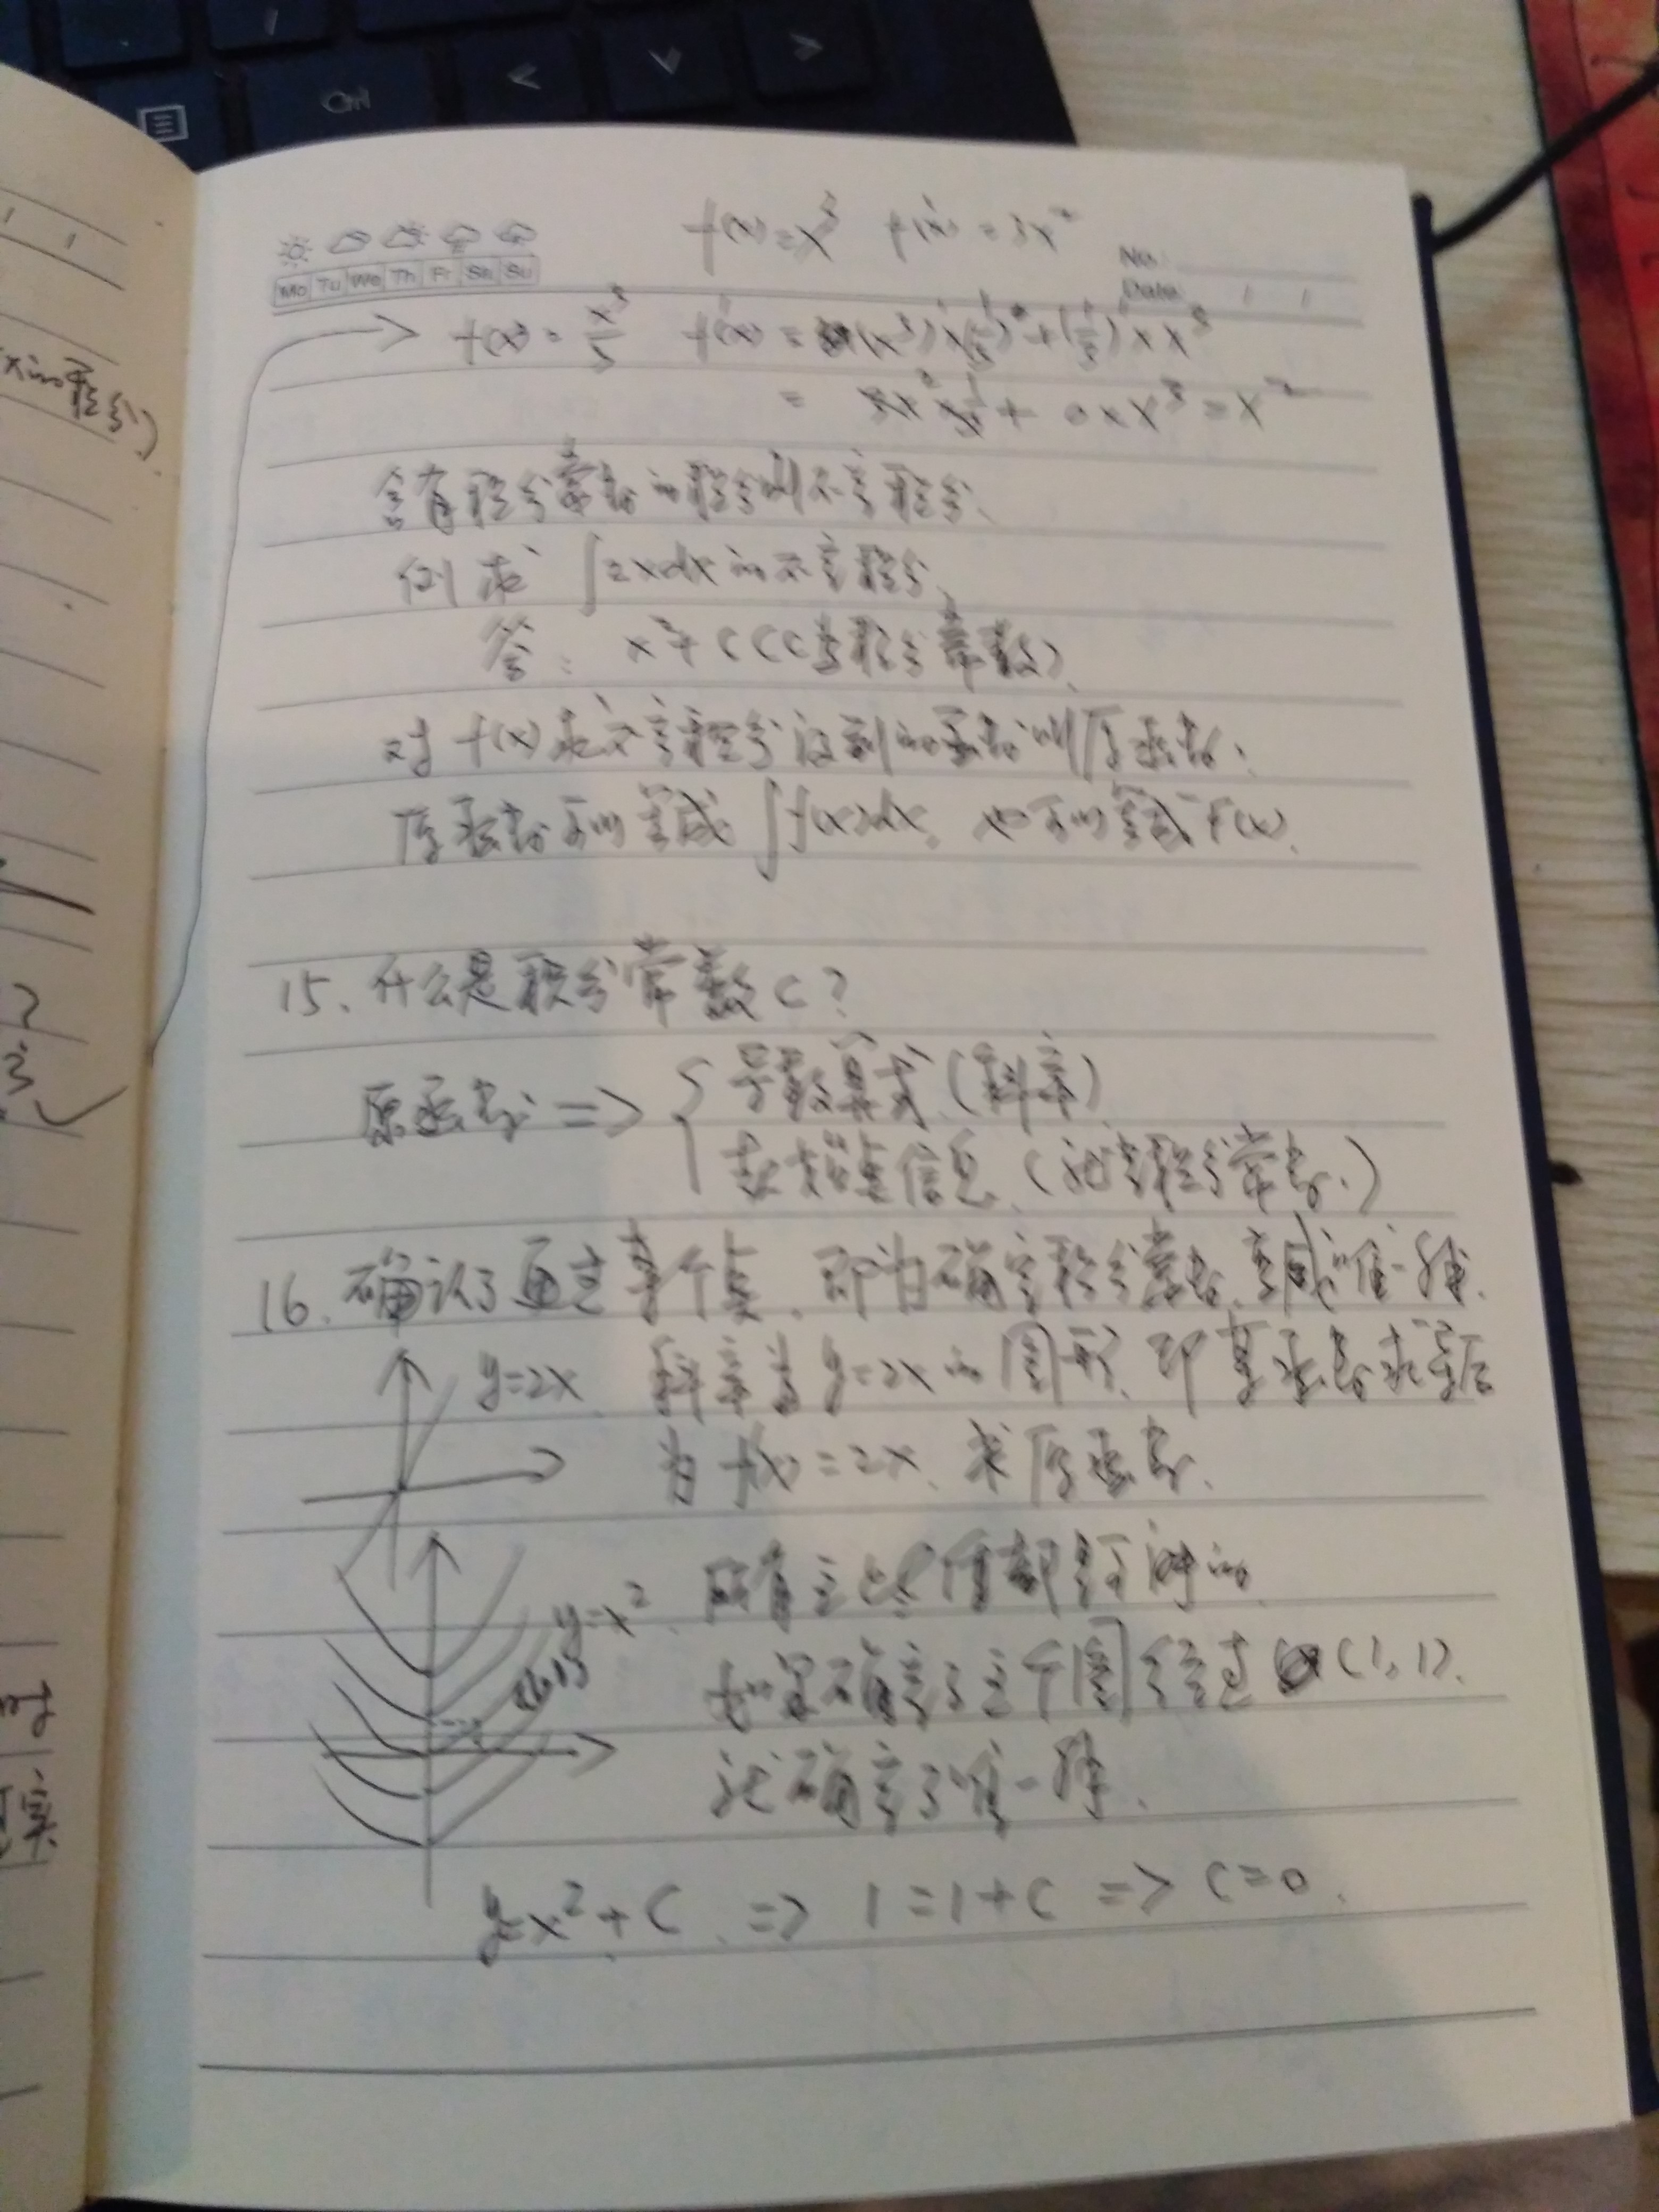 Ctrl
< ∨ >
f(x)=x³ f'(x)=3x²
No.
Mo Tu We Th Fr Sa Su
Date
f(x)= x³/3 f'(x)=(x³)'×(1/3)+(1/3)'×x³
= 3x²×1/3+0×x³=x²
含有积分常数的积分叫不定积分.
例 求 ∫2xdx的不定积分.
答: x²+C(C为积分常数).
对f(x)求不定积分得到的函数叫原函数.
原函数可以写成 ∫f(x)dx, 也可以写成F(x).
15、什么是积分常数C?
原函数 => { 导数算式(斜率)
起始点信息 (就是积分常数.)
16、确认了通过某个点, 即为确定积分常数, 变成唯一解.
y=2x 斜率为y=2x的图形, 即某函数求导后
为f(x)=2x, 求原函数.
y=x² 所有C值都是可能的
(1,1) 如果确定了这个图经过(1,1).
就确定了唯一解.
y=x²+C. => 1=1+C => C=0.